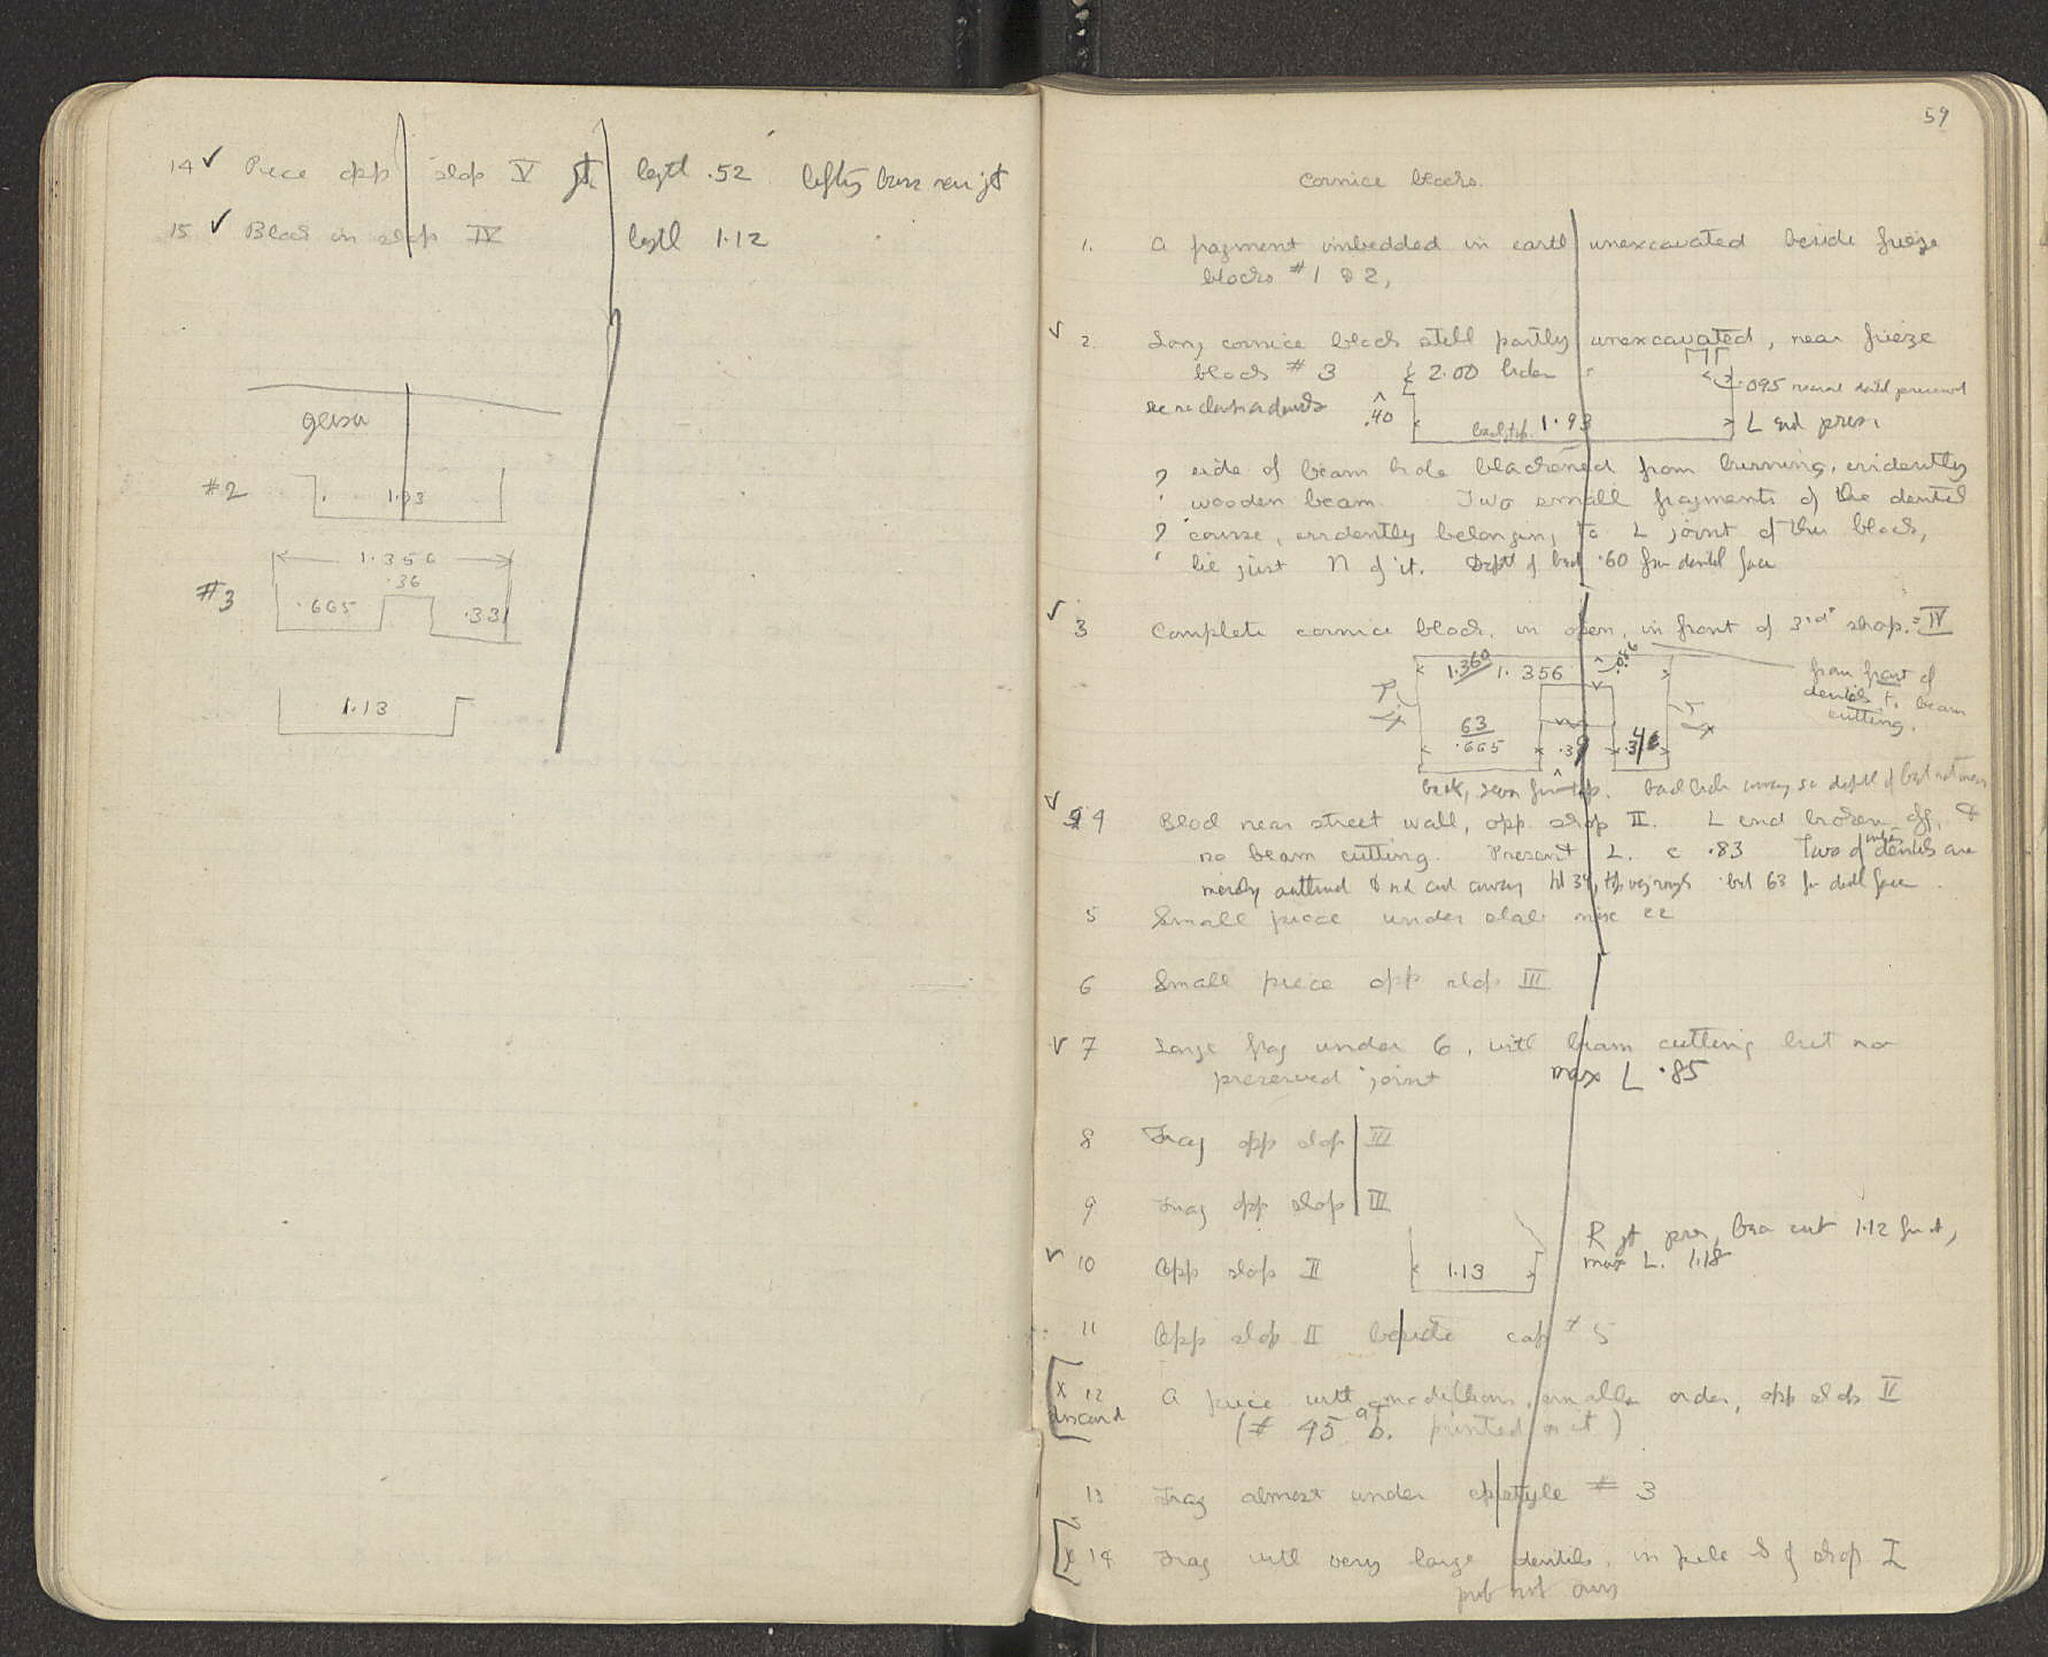 14 ✓ Piece opp shop V lgth .52
15 ✓ Block in shop IV lgth 1.12
geisa
#2 1.93
1.356
.36
#3 .665 .331
1.13
59
Cornice blocks.
1. A fragment imbedded in earth unexcavated beside frieze
blocks #1 & 2,
✓ 2. Long cornice block still partly unexcavated, near frieze
block # 3 2.00
.095
.40 1.93 L end pres.
? side of beam hole blackened from burning, evidently
wooden beam. Two small fragments of the dentil
? course, evidently belonging to L joint of this block,
lie just N of it. Depth of bed .60 from dentil face
✓ 3 Complete cornice block, in open, in front of 3rd shop. = IV
1.360 1.356 .086
from front of
dentils to beam
cutting.
63
.665
back, seen from top.
✓ 4 Block near street wall, opp. shop II. L end broken off, &
no beam cutting. Present L. c .83 Two of dentils are
merely outlined & not cut away bed 63 fr dentil face
5 Small piece under slab misc 22
6 Small piece opp shop III
✓ 7 Large frag under 6, with beam cutting but no
preserved joint max L .85
8 Frag opp shop III
9 Frag opp shop III
✓ 10 Opp shop II 1.13 R jt pres, beam cut 1.12 fr jt,
max L. 1.18
11 Opp shop II beside cap # 5
x 12 A piece with modillions, smaller order, opp shop V
discard (# 45 ab. printed on it)
13 Frag almost under epistyle # 3
x 14 Frag with very large dentils, in pile S of shop I
prob not ours